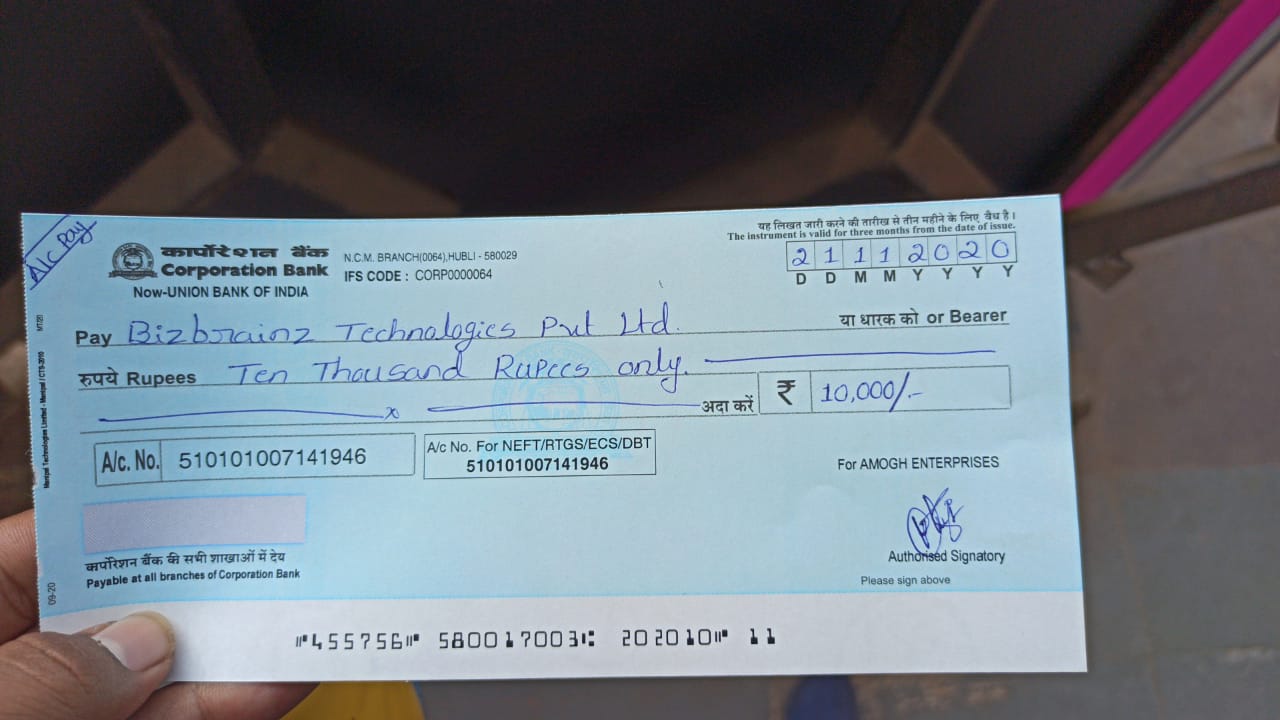 A/c Pay
कार्पोरेशन बैंक
Corporation Bank
Now-UNION BANK OF INDIA
N.C.M. BRANCH(0064),HUBLI - 580029
IFS CODE : CORP0000064
यह लिखत जारी करने की तारीख से तीन महीने के लिए वैध है।
The instrument is valid for three months from the date of issue.
2 1 1 1 2 0 2 0
D D M M Y Y Y Y
Pay Bizbrainz Technologies Pvt Ltd. या धारक को or Bearer
रुपये Rupees Ten Thousand Rupees only.
अदा करें ₹ 10,000/-
A/c. No. 510101007141946
A/c No. For NEFT/RTGS/ECS/DBT
510101007141946
For AMOGH ENTERPRISES
Authorised Signatory
Please sign above
कार्पोरेशन बैंक की सभी शाखाओं में देय
Payable at all branches of Corporation Bank
Manipal Technologies Limited - Manipal / CTS-2010
09-20
⑈455756⑈ 580017003⑆ 202010⑈ 11